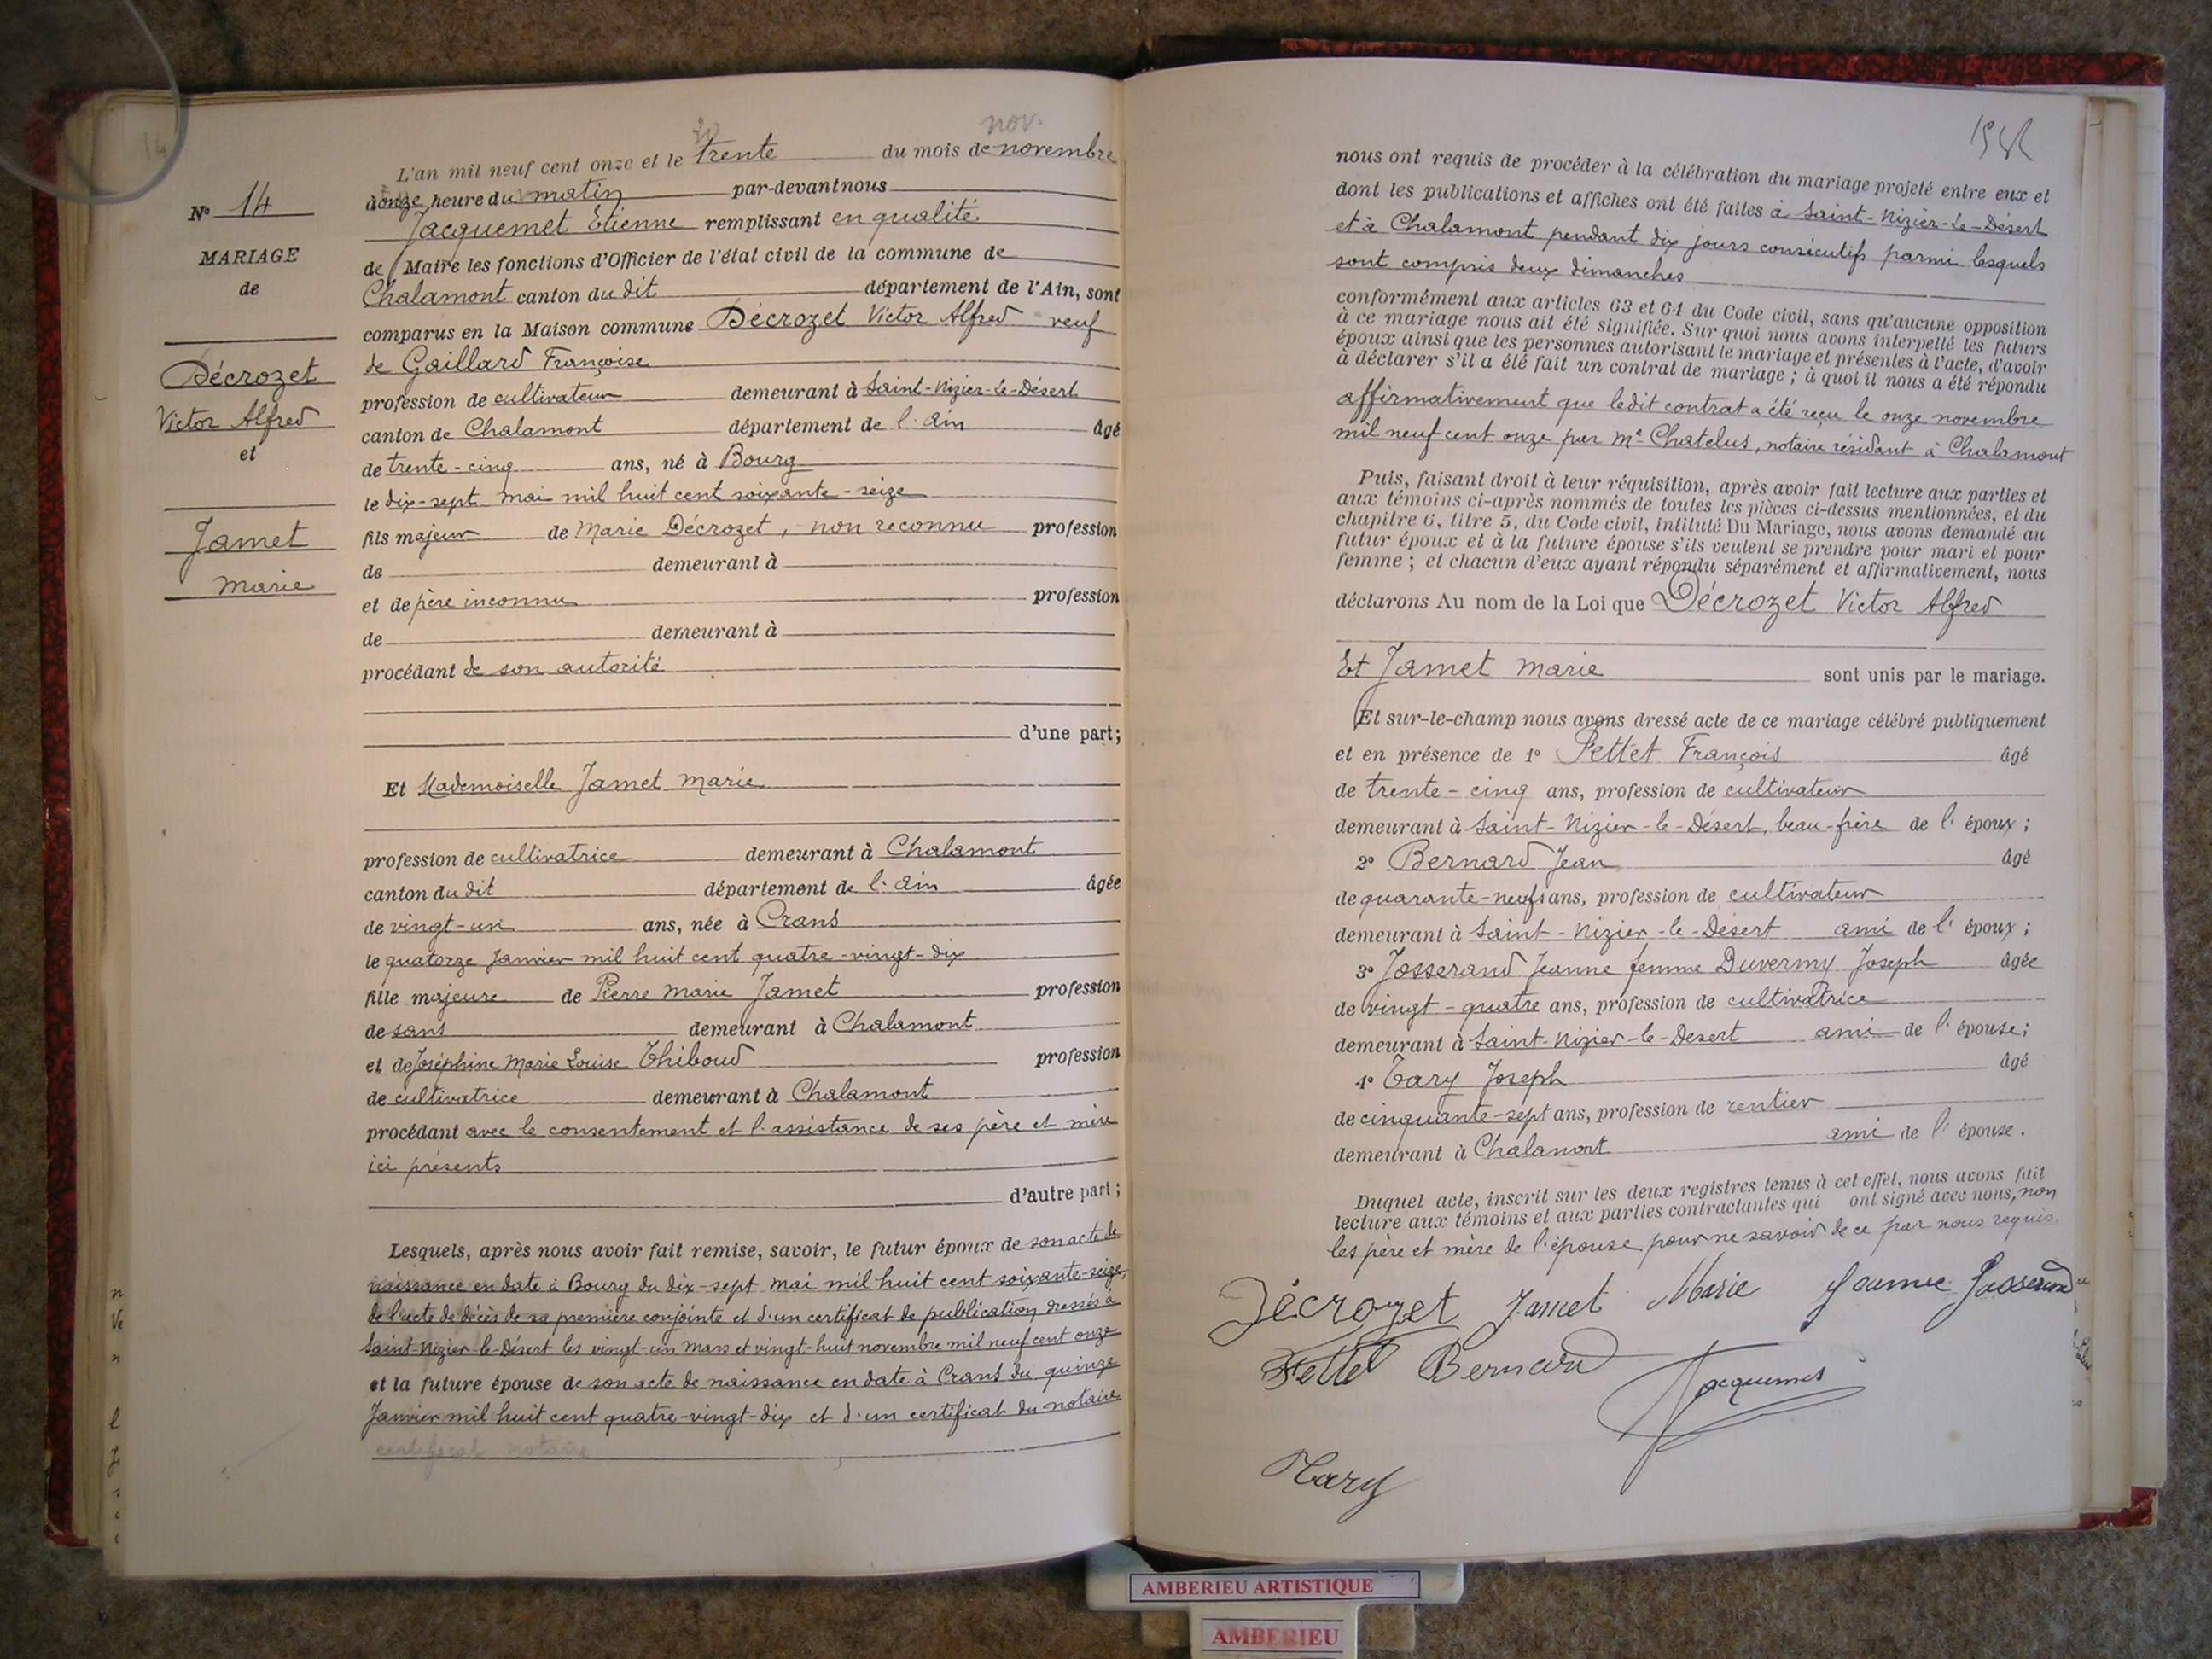 14
30
nov.
L'an mil neuf cent onze et le trente du mois de novembre
à onze heure du matin par-devant nous
Jacquemet Etienne remplissant en qualité
de Maire les fonctions d'Officier de l'état civil de la commune de
Chalamont canton du dit département de l'Ain, sont
comparus en la Maison commune Décrozet Victor Alfred veuf
de Gaillard Françoise
profession de cultivateur demeurant à Saint-Nizier-le-Désert
canton de Chalamont département de l'Ain âgé
de trente-cinq ans, né à Bourg
le dix-sept mai mil huit cent soixante-seize
fils majeur de Marie Décrozet, non reconnu profession
de demeurant à
et de père inconnu profession
de demeurant à
procédant de son autorité
d'une part;
Et Mademoiselle Jamet Marie
profession de cultivatrice demeurant à Chalamont
canton du dit département de l'Ain âgée
de vingt-un ans, née à Crans
le quatorze Janvier mil huit cent quatre-vingt-dix
fille majeure de Pierre Marie Jamet profession
de sans demeurant à Chalamont
et de Joséphine Marie Louise Thiboud profession
de cultivatrice demeurant à Chalamont
procédant avec le consentement et l'assistance de ses père et mère
ici présents
d'autre part;
Lesquels, après nous avoir fait remise, savoir, le futur époux de son acte de
naissance en date à Bourg du dix-sept mai mil huit cent soixante-seize,
de l'acte de décès de sa première conjointe et d'un certificat de publication dressés à
Saint-Nizier-le-Désert les vingt-un mars et vingt-huit novembre mil neuf cent onze
et la future épouse de son acte de naissance en date à Crans du quinze
Janvier mil huit cent quatre-vingt-dix et d'un certificat du notaire
certificat notaire
N° 14
MARIAGE
de
Décrozet
Victor Alfred
et
Jamet
Marie
nous ont requis de procéder à la célébration du mariage projeté entre eux et
dont les publications et affiches ont été faites à Saint-Nizier-Le-Désert
et à Chalamont pendant dix jours consécutifs parmi lesquels
sont compris deux dimanches
conformément aux articles 63 et 64 du Code civil, sans qu'aucune opposition
à ce mariage nous ait été signifiée. Sur quoi nous avons interpellé les futurs
époux ainsi que les personnes autorisant le mariage et présentes à l'acte, d'avoir
à déclarer s'il a été fait un contrat de mariage; à quoi il nous a été répondu
affirmativement que ledit contrat a été reçu le onze novembre
mil neuf cent onze par Me Chatelus, notaire résidant à Chalamont
Puis, faisant droit à leur réquisition, après avoir fait lecture aux parties et
aux témoins ci-après nommés de toutes les pièces ci-dessus mentionnées, et du
chapitre 6, titre 5, du Code civil, intitulé Du Mariage, nous avons demandé au
futur époux et à la future épouse s'ils veulent se prendre pour mari et pour
femme; et chacun d'eux ayant répondu séparément et affirmativement, nous
déclarons Au nom de la Loi que Décrozet Victor Alfred
Et Jamet Marie sont unis par le mariage.
Et sur-le-champ nous avons dressé acte de ce mariage célébré publiquement
et en présence de 1° Pettet François âgé
de trente-cinq ans, profession de cultivateur
demeurant à Saint-Nizier-le-Désert, beau-frère de l'époux;
2° Bernard Jean âgé
de quarante-neuf ans, profession de cultivateur
demeurant à Saint-Nizier-le-Désert ami de l'époux;
3° Josserand Jeanne femme Duvermy Joseph âgée
de vingt-quatre ans, profession de cultivatrice
demeurant à Saint-Nizier-le-Desert ami de l'épouse;
4° Tary Joseph âgé
de cinquante-sept ans, profession de rentier
demeurant à Chalamont ami de l'épouse.
Duquel acte, inscrit sur les deux registres tenus à cet effet, nous avons fait
lecture aux témoins et aux parties contractantes qui ont signé avec nous, non
les père et mère de l'épouse pour ne savoir de ce par nous requis.
Décrozet Jamet Marie Jeanne Josserand
Pettet Bernard Jacquemet
Tary
AMBERIEU ARTISTIQUE
AMBERIEU